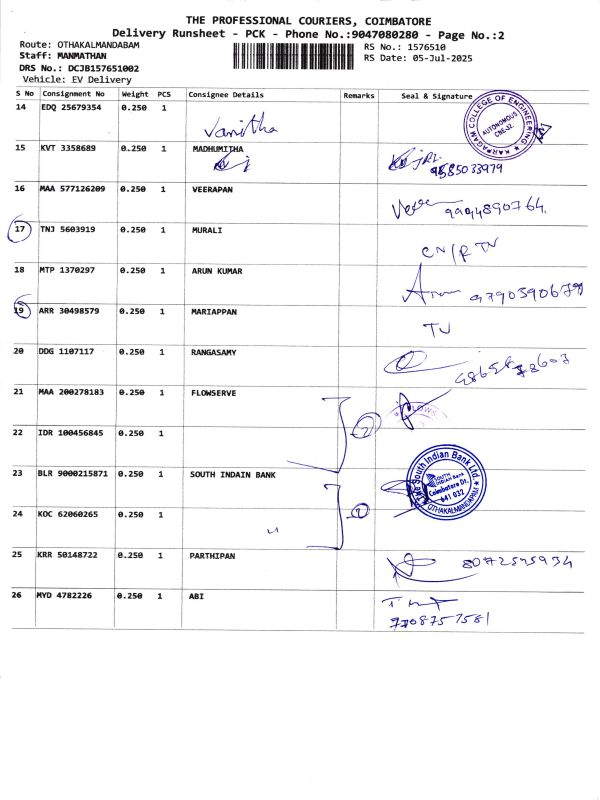 THE PROFESSIONAL COURIERS, COIMBATORE
Delivery Runsheet - PCK - Phone No.:9047080280 - Page No.:2
Route: OTHAKALMANDABAM
RS No.: 1576510
Staff: MANMATHAN
RS Date: 05-Jul-2025
DRS No.: DCJB157651002
Vehicle: EV Delivery
S No Consignment No Weight PCS Consignee Details Remarks Seal & Signature
14 EDQ 25679354 0.250 1
Vanitha
KARPAGAM COLLEGE OF ENGINEERING
AUTONOMOUS
CNE-32.
15 KVT 3358689 0.250 1 MADHUMITHA
9585033979
16 MAA 577126209 0.250 1 VEERAPAN
9994890764.
17 TNJ 5603919 0.250 1 MURALI
CN/R TN
18 MTP 1370297 0.250 1 ARUN KUMAR
19 ARR 30498579 0.250 1 MARIAPPAN
20 DDG 1107117 0.250 1 RANGASAMY
21 MAA 200278183 0.250 1 FLOWSERVE
2
22 IDR 100456845 0.250 1
23 BLR 9000215871 0.250 1 SOUTH INDAIN BANK
The South Indian Bank Ltd.
SOUTH INDIAN Bank
Coimbatore Dt.
641 032
OTHAKALMANDAPAM
24 KOC 62060265 0.250 1
25 KRR 50148722 0.250 1 PARTHIPAN
8072595934
26 MYD 4782226 0.250 1 ABI
7708757581